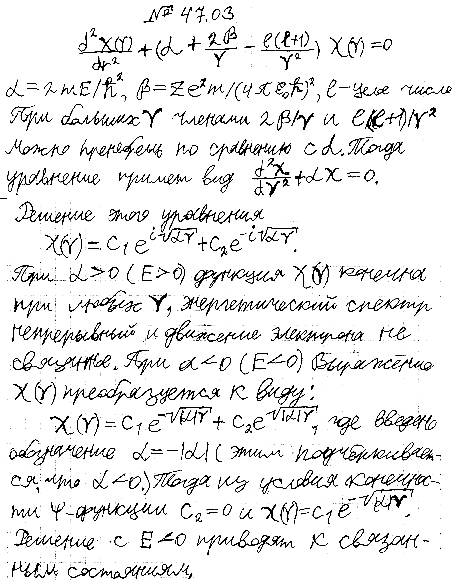 № 47.03
d²χ(r)/dr² + (α + 2β/r − ℓ(ℓ+1)/r²) χ(r) = 0
α = 2mE/ħ², β = Ze²m/(4πε₀ħ)², ℓ-целое число
При больших r членами 2β/r и ℓ(ℓ+1)/r²
можно пренебречь по сравнению с α. Тогда
уравнение примет вид d²χ/dr² + αχ = 0.
Решение этого уравнения
χ(r) = C₁e^{i√αr} + C₂e^{-i√αr}.
При α > 0 (E > 0) функция χ(r) конечна
при любых r, энергетический спектр
непрерывный и движение электрона не
связанное. При α < 0 (E < 0) выражение
χ(r) преобразуется к виду:
χ(r) = C₁e^{-√|α|r} + C₂e^{-√|α|r}, где введено
обозначение α = -|α| (этим подчёркивает-
ся, что α < 0.) Тогда из условия конечнос-
ти ψ-функции C₂ = 0 и χ(r) = C₁e^{-√|α|r}.
Решение с E < 0 приводят к связан-
ным состояниям,